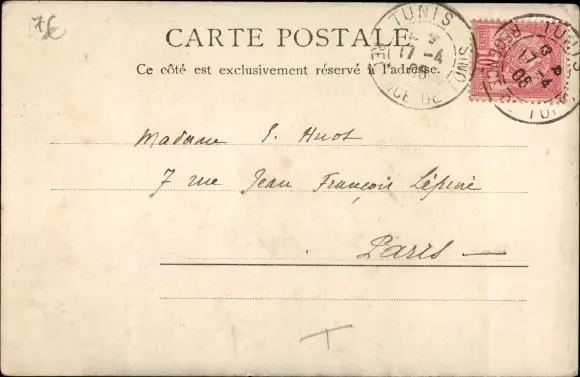 7€
CARTE POSTALE
Ce côté est exclusivement réservé à l'adresse.
TUNIS
17 -4
06
REGENCE DE TUNIS
TUNIS
8
17 -4
06
REGENCE DE TUNIS
10
Madame E. Huot
7 rue Jean François Lépine
Paris —
T